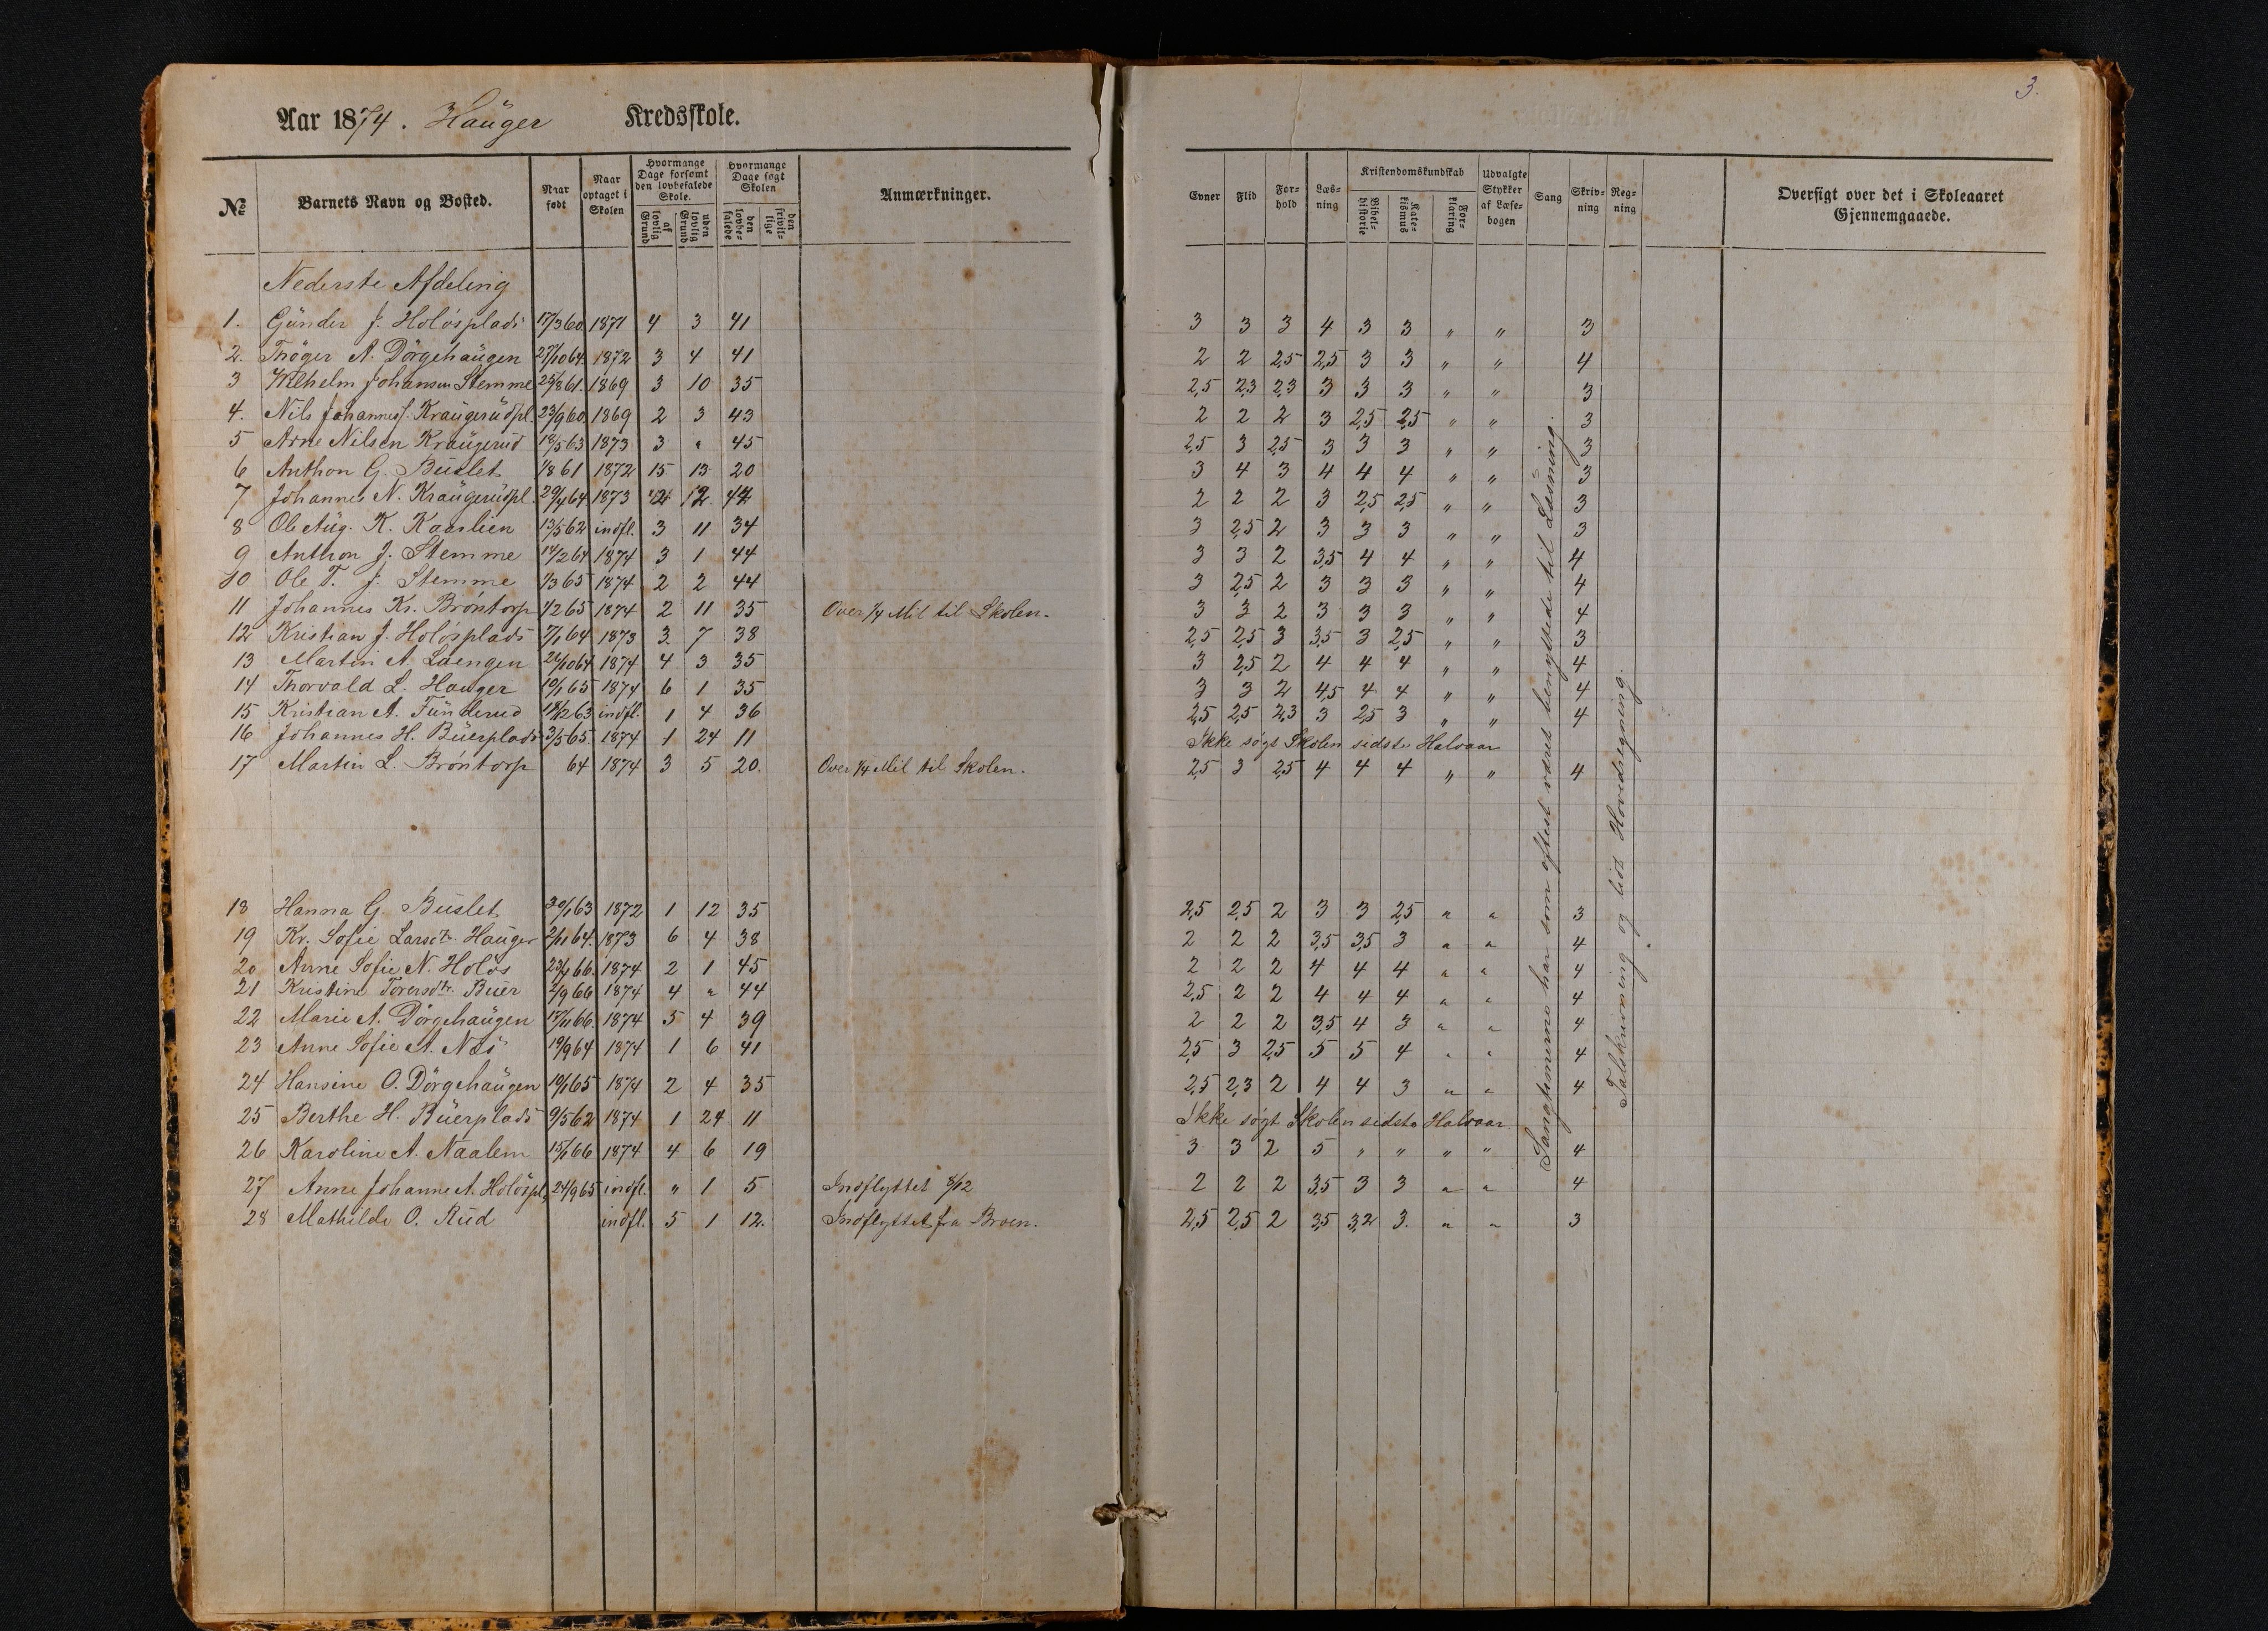 3.
Aar 1874. Haŭger Kredsskole.
№
Barnets Navn og Bosted.
Naar født
Naar optaget i Skolen
Hvormange Dage forsømt den lovbefalede Skole.
af lovlig Grund
uden lovlig Grund
Hvormange Dage søgt Skolen
den lovbefalede
den frivillige
Anmærkninger.
Evner
Flid
Forhold
Læsning
Kristendomskundskab
Bibelhistorie
Katekismus
Forklaring
Udvalgte Stykker af Læsebogen
Sang
Skrivning
Regning
Oversigt over det i Skoleaaret Gjennemgaaede.
Nederste Afdeling
1. Gŭnder J. Holösplads 17/3 60 1871 4 3 41 3 3 3 4 3 3 " " 3
2. Thöger A. Dörgehaŭgen 27/10 64 1872 3 4 41 2 2 2,5 2,5 3 3 " " 4
3 Wilhelm Johansen Stemme 25/8 61 1869 3 10 35 2,5 2,3 2,3 3 3 3 " " 3
4. Nils Johanness. Kraŭgerŭdpl. 23/9 60 1869 2 3 43 2 2 2 3 2,5 2,5 " " 3
5 Arne Nilsen Kraŭgerud 18/5 63 1873 3 " 45 2,5 3 2,5 3 3 3 " " 3
6 Anthon G. Bŭslet 1/8 61 1872 15 13 20 3 4 3 4 4 4 " " 3
7 Johannes N. Kraŭgerŭdpl. 29/4 64 1873 12 2 2 2 3 2,5 2,5 " " 3
8 Ole Aŭg. K. Kaarlien 13/5 62 indfl. 3 11 34 3 2,5 2 3 3 3 " " 3
9 Anthon J. Stemme 14/2 64 1874 3 1 44 3 3 2 3,5 4 4 " " 4
10 Ole T. J. Stemme 1/3 65 1874 2 2 44 3 2,5 2 3 3 3 " " 4
11 Johannes Kr. Bröntorp 1/2 65 1874 2 11 35 Over 1/4 Mil til Skolen. 3 3 2 3 3 3 " " 4
12 Kristian J. Holösplads 7/1 64 1873 3 7 38 2,5 2,5 3 3,5 3 2,5 " " 3
13 Martin A. Laengen 26/10 64 1874 4 3 35 3 2,5 2 4 4 4 " " 4
14 Thorvald L. Hauger 10/1 65 1874 6 1 35 3 3 2 4,5 4 4 " " 4
15 Kristian A. Fŭnderud 18/12 63 indfl. 1 4 36 2,5 2,5 2,3 3 2,5 3 " " 4
16 Johannes H. Bŭerplads 3/5 65 1874 1 24 11 Ikke søgt Skolen sidste Halvaar
17 Martin L. Bröntorp 64 1874 3 5 20. Over 1/4 Mil til Skolen. 2,5 3 2,5 4 4 4 " " 4
18 Hanna G. Bŭslet 30/1 63 1872 1 12 35 2,5 2,5 2 3 3 2,5 " " 3
19 Kr. Sofie Larsdtr. Haŭger 2/11 64 1873 6 4 38 2 2 2 3,5 3,5 3 " " 4
20 Anne Sofie N. Holös 23/4 66 1874 2 1 45 2 2 2 4 4 4 " " 4
21 Kristine Torersdtr. Bŭer 2/9 66 1874 4 " 44 2,5 2 2 4 4 4 " " 4
22 Marie A. Dörgehaŭgen 17/11 66 1874 5 4 39 2 2 2 3,5 4 3 " " 4
23 Anne Sofie A. Næs 19/9 64 1874 1 6 41 2,5 3 2,5 5 5 4 " " 4
24 Hansine O. Dörgehaŭgen 10/1 65 1874 2 4 35 2,5 2,3 2 4 4 3 " " 4
25 Berthe H. Bŭerplads 9/5 62 1874 1 24 11 Ikke søgt Skolen sidste Halvaar
26 Karoline A. Naalem 15/1 66 1874 4 6 19 3 3 2 5 " " " " 4
27 Anne Johanne A. Holöspl. 24/9 65 indfl. " 1 5 Indflyttet 8/12 2 2 2 3,5 3 3 " " 4
28 Mathilde O. Rŭd indfl. 5 1 12. Indflyttet fra Broen. 2,5 2,5 2 3,5 3,2 3. " " 3
Sangtimerne har som oftest været benyttede til Læsning.
Talskrivning og lidt Hovedregning.